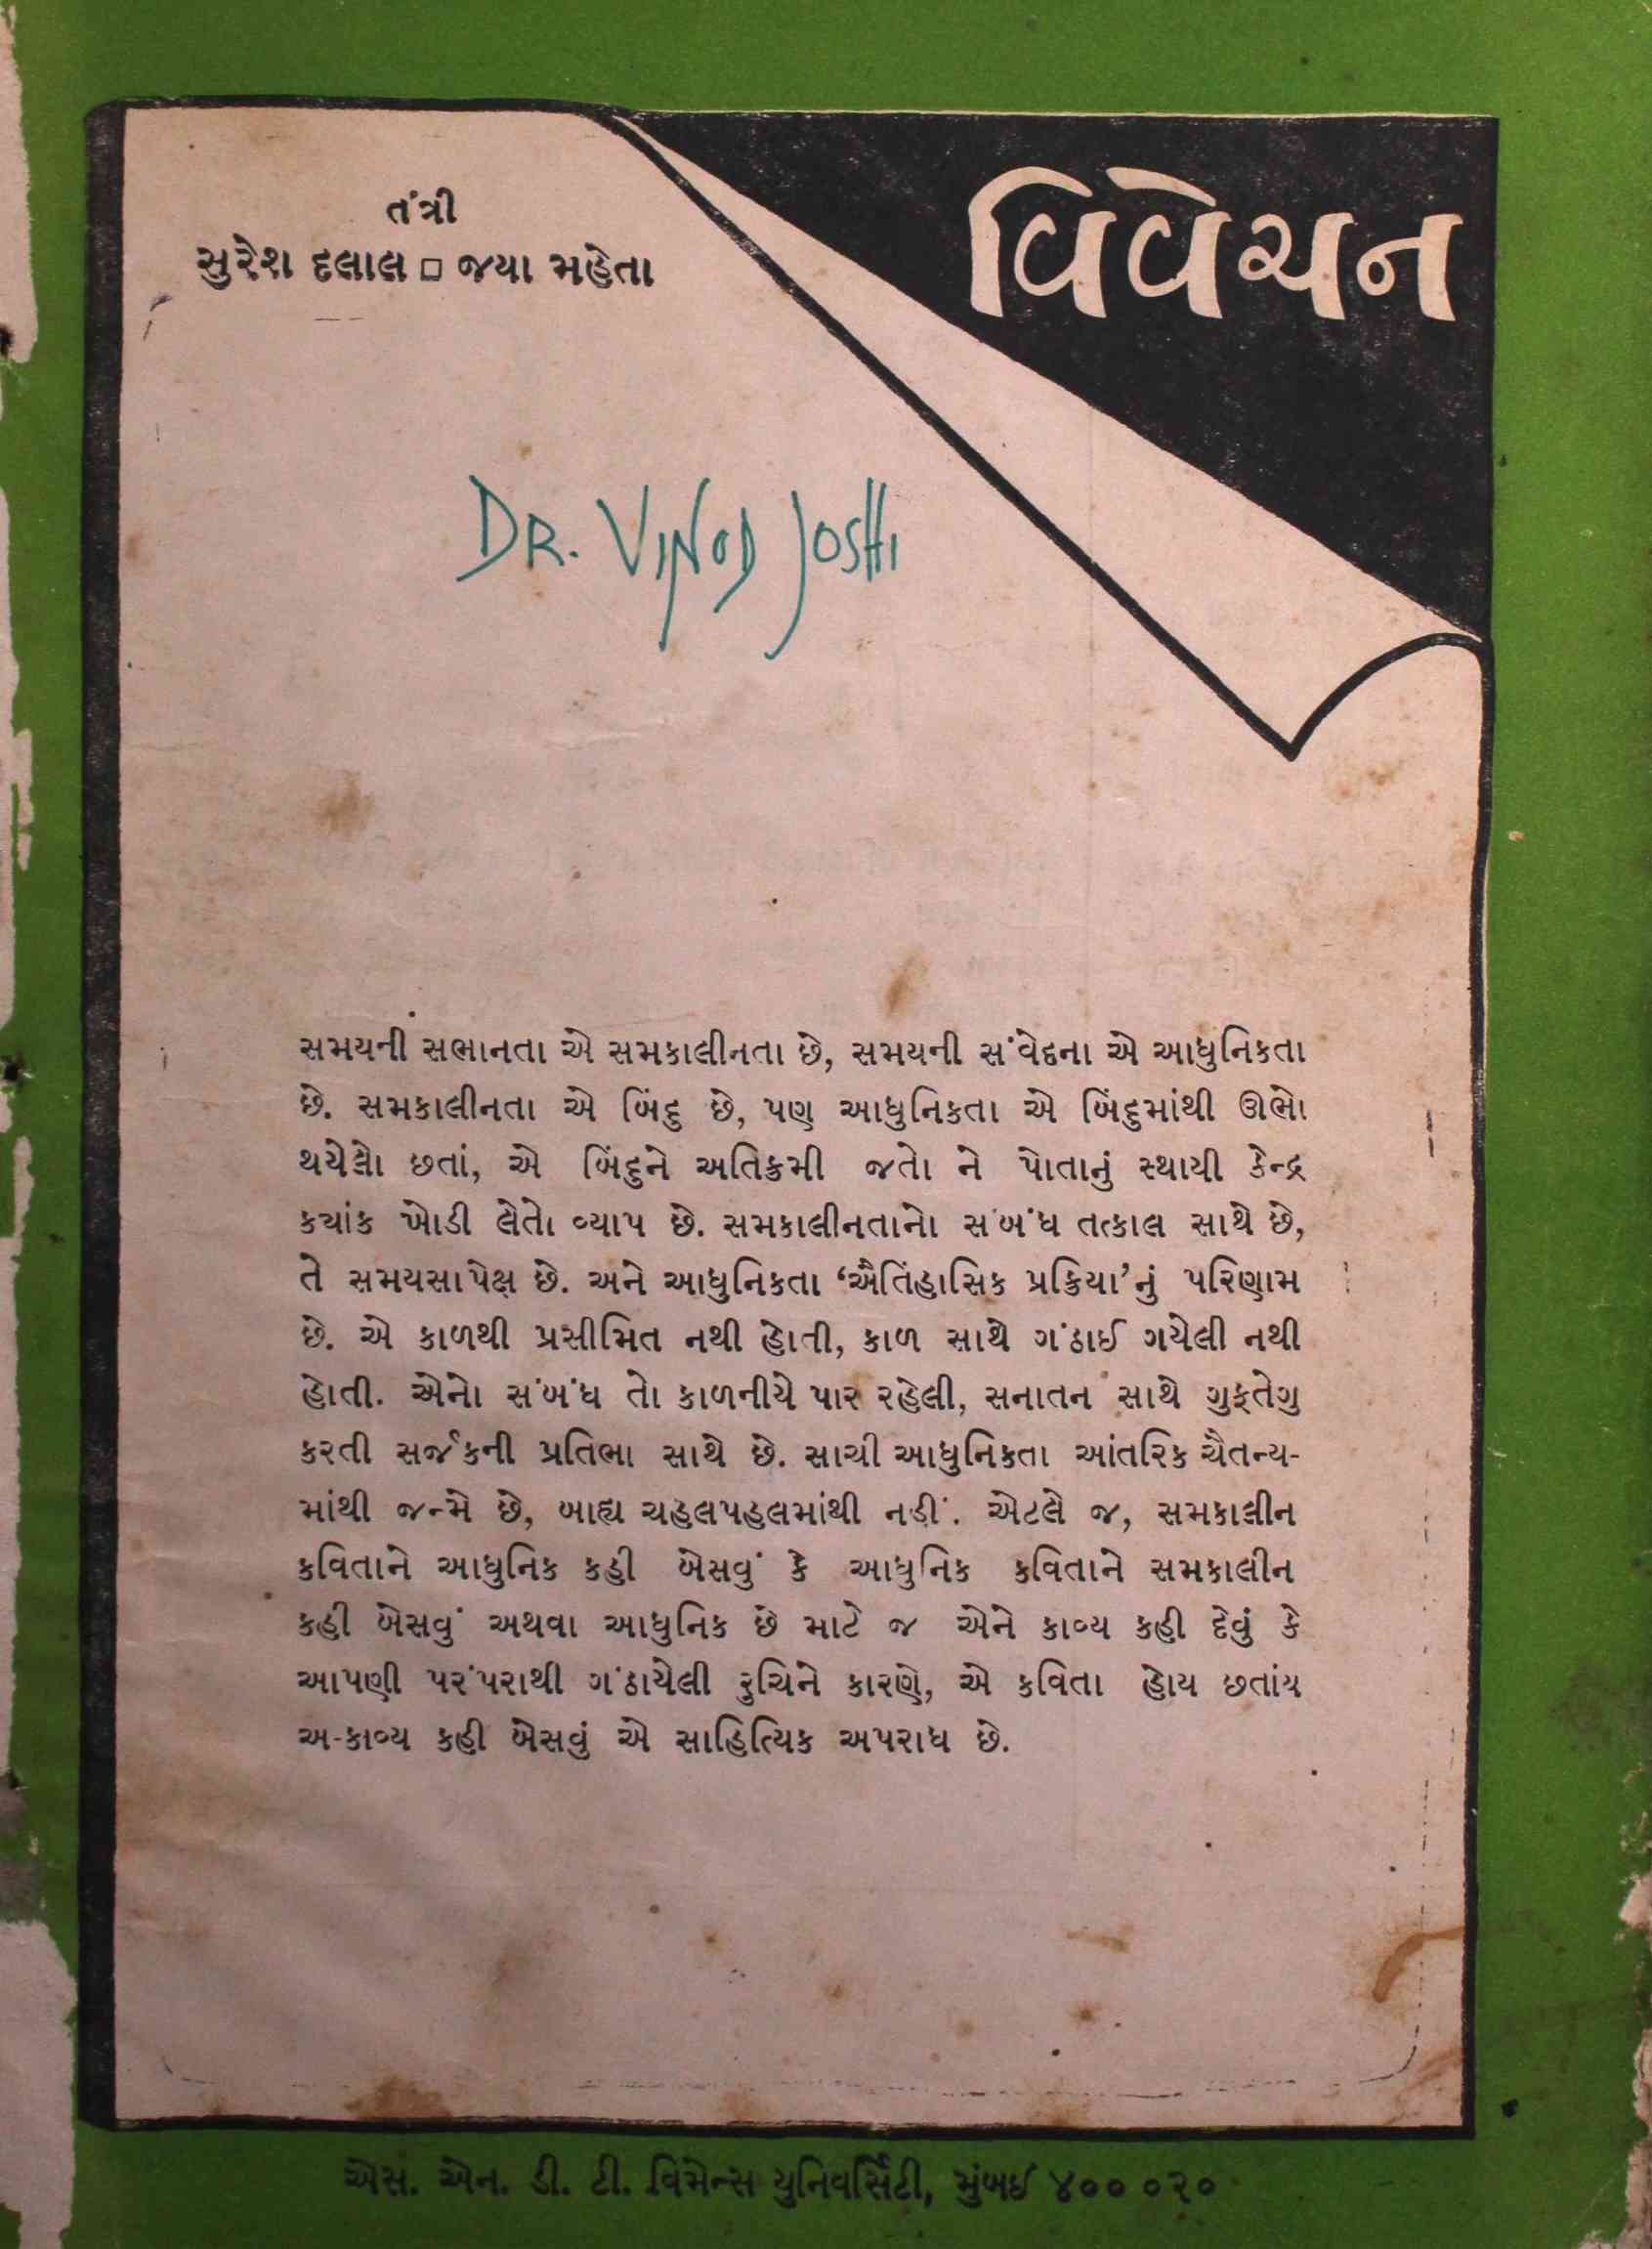 વિવેચન
તંત્રી
સુરેશ દલાલ □ જયા મહેતા
DR. VINOD JOSHI
સમયની સભાનતા એ સમકાલીનતા છે, સમયની સંવેદના એ આધુનિકતા
છે. સમકાલીનતા એ બિંદુ છે, પણ આધુનિકતા એ બિંદુમાંથી ઊભો
થયેલો છતાં, એ બિંદુને અતિક્રમી જતો ને પોતાનું સ્થાયી કેન્દ્ર
કયાંક ખોડી લેતો વ્યાપ છે. સમકાલીનતાનો સંબંધ તત્કાલ સાથે છે,
તે સમયસાપેક્ષ છે. અને આધુનિકતા ‘ઐતિહાસિક પ્રક્રિયા’નું પરિણામ
છે. એ કાળથી પ્રસીમિત નથી હોતી, કાળ સાથે ગંઠાઈ ગયેલી નથી
હોતી. એનો સંબંધ તો કાળનીયે પાર રહેલી, સનાતન સાથે ગુફતેગુ
કરતી સર્જકની પ્રતિભા સાથે છે. સાચી આધુનિકતા આંતરિક ચૈતન્ય-
માંથી જન્મે છે, બાહ્ય ચહલપહલમાંથી નહીં. એટલે જ, સમકાલીન
કવિતાને આધુનિક કહી બેસવું કે આધુનિક કવિતાને સમકાલીન
કહી બેસવું અથવા આધુનિક છે માટે જ એને કાવ્ય કહી દેવું કે
આપણી પરંપરાથી ગંઠાયેલી રુચિને કારણે, એ કવિતા હોય છતાંય
અ-કાવ્ય કહી બેસવું એ સાહિત્યિક અપરાધ છે.
એસ. એન. ડી. ટી. વિમેન્સ યુનિવર્સિટી, મુંબઈ ૪૦૦ ૦૨૦